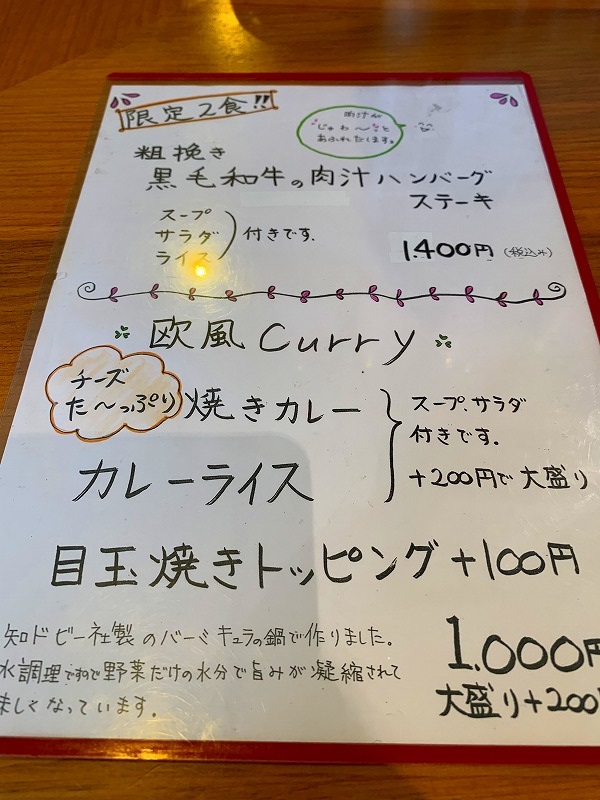 限定2食!!
肉汁が
じゅわ〜っと
あふれだします。
粗挽き
黒毛和牛の肉汁ハンバーグ
ステーキ
スープ
サラダ
ライス
付きです.
1.400円(税込み)
欧風Curry
チーズ
た〜っぷり
焼きカレー
スープ、サラダ
付きです。
+200円で大盛り
カレーライス
目玉焼きトッピング+100円
知ドビー社製のバーミキュラの鍋で作りました。
水調理ですので野菜だけの水分で旨みが凝縮されて
味しくなっています.
1.000円
大盛り+200